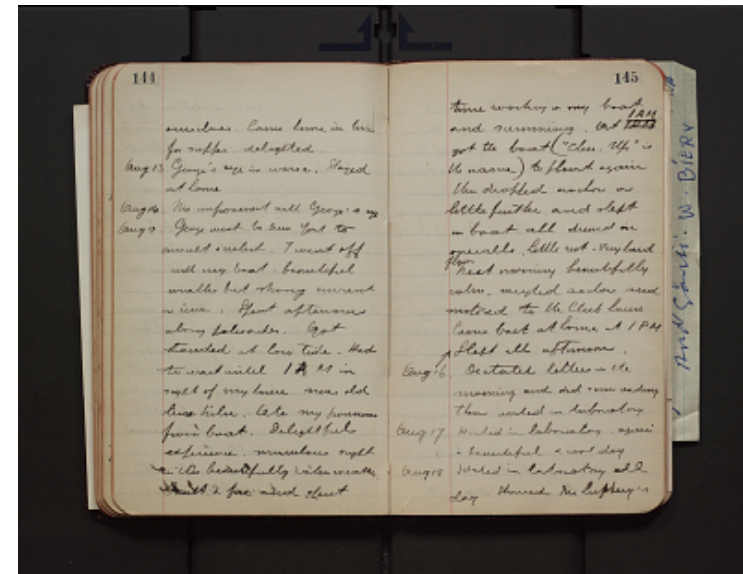 144
ourselves. Came home in time
for supper. delighted.
Aug 13 George's eye is worse. Stayed
at home
Aug 14 No improvement with George's eye
Aug 15 George went to New York to
consult oculist. I went off
with my boat. beautiful
weather but strong current
in river. Spent afternoon
along palisades. Got
stranded at low tide. Had
to wait until 1 A M in
sight of my house near old
lime kiln. Ate my provisions
from boat. Delightful
experience. miraculous night
in the beautifully calm weather
Built a fire and spent
145
time working on my boat
and swimming. At 1 A M
got the boat ("Close-Up" is
the name) to float again
then dropped anchor a
little further and slept
in boat all dressed in
overalls. little rest. Very hard
floor.
Next morning beautifully
calm, weighed anchor and
motored to the Club house
Came back at home at 1 PM
Slept all afternoon.
Aug 16 Dictated letters in the
morning and did some reading
then worked in laboratory
Aug 17 Worked in laboratory again
a beautiful cool day
Aug 18 Worked in laboratory all
day. Showed Mr
W. BIERY